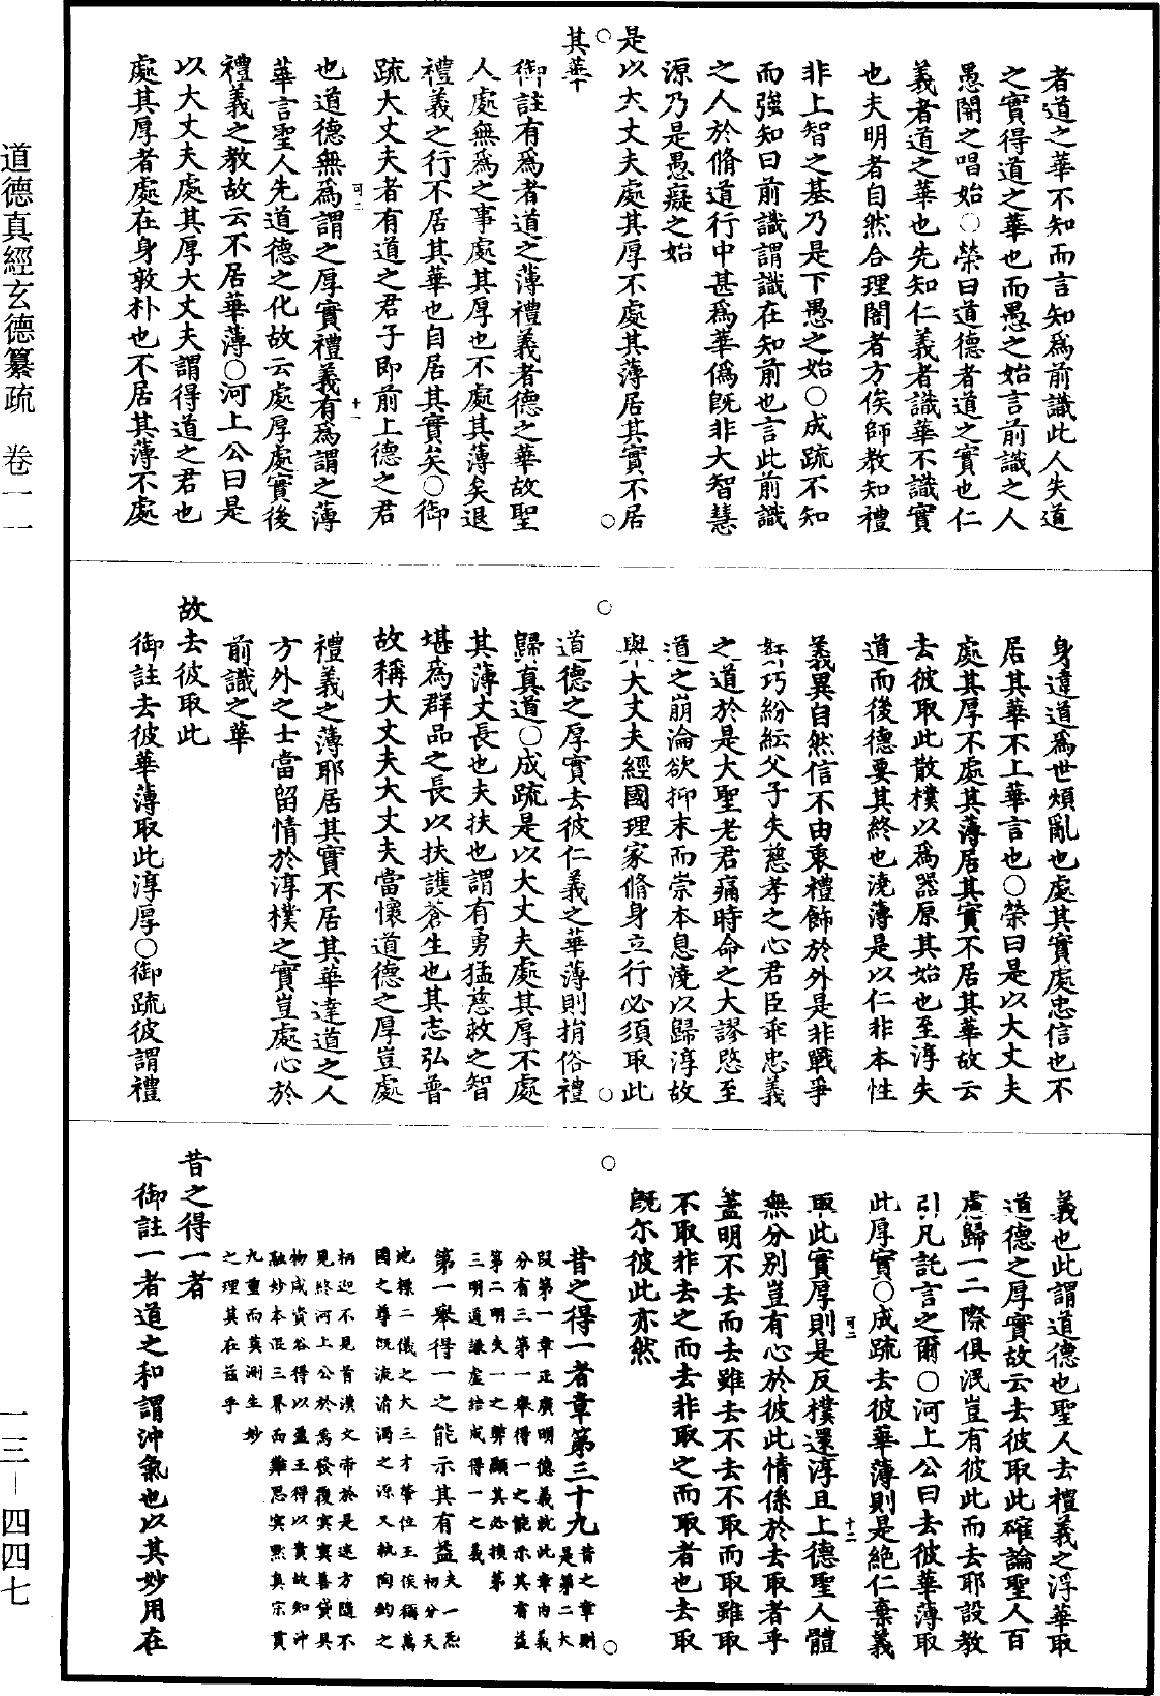 道德真經玄德纂疏　卷一一
一三—四四七
者道之華不知而言知為前識此人失道
之實得道之華也而愚之始言前識之人
愚闇之唱始○榮曰道德者道之實也仁
義者道之華也先知仁義者識華不識實
也夫明者自然合理闇者方俟師教知禮
非上智之基乃是下愚之始○成疏不知
而強知曰前識謂識在知前也言此前識
之人於脩道行中甚為華偽既非大智慧
源乃是愚癡之始
是以大丈夫處其厚不處其薄居其實不居
其華
御註有為者道之薄禮義者德之華故聖
人處無為之事處其厚也不處其薄矣退
禮義之行不居其華也自居其實矣○御
疏大丈夫者有道之君子即前上德之君
也道德無為謂之厚實禮義有為謂之薄
華言聖人先道德之化故云處厚處實後
禮義之教故云不居華薄○河上公曰是
以大丈夫處其厚大丈夫謂得道之君也
處其厚者處在身敦朴也不居其薄不處
可二
十一
身違道為世煩亂也處其實處忠信也不
居其華不上華言也○榮曰是以大丈夫
處其厚不處其薄居其實不居其華故云
去彼取此散樸以為器原其始也至淳失
道而後德要其終也澆薄是以仁非本性
義異自然信不由衷禮飾於外是非戰爭
姧巧紛紜父子失慈孝之心君臣乖忠義
之道於是大聖老君痛時命之大謬愍至
道之崩淪欲抑末而崇本息澆以歸淳故
舉大丈夫經國理家脩身立行必須取此
道德之厚實去彼仁義之華薄則捐俗禮
歸真道○成疏是以大丈夫處其厚不處
其薄丈長也夫扶也謂有勇猛慈救之智
堪為群品之長以扶護蒼生也其志弘普
故稱大丈夫大丈夫當懷道德之厚豈處
禮義之薄耶居其實不居其華達道之人
方外之士當留情於淳樸之實豈處心於
前識之華
故去彼取此
御註去彼華薄取此淳厚○御疏彼謂禮
義也此謂道德也聖人去禮義之浮華取
道德之厚實故云去彼取此確論聖人百
慮歸一二際俱泯豈有彼此而去耶設教
引凡託言之爾○河上公曰去彼華薄取
此厚實○成疏去彼華薄則是絕仁棄義
取此實厚則是反樸還淳且上德聖人體
無分別豈有心於彼此情係於去取者乎
蓋明不去而去雖去不去不取而取雖取
不取非去之而去非取之而取者也去取
既尔彼此亦然
可二
十二
昔之得一者章第三十九
昔之章則是第二大
段第一章正廣明德義就此章內義
分有三第一舉得一之能示其有益
第二明失一之弊顯其必損第
三明通謙虛結成得一之義
第一舉得一之能示其有益
夫一炁初分天
地櫱二儀之大三才肇位王侯稱萬
國之尊既淑淯濁之源又執陶鈞之
柄迎不見首漢文帝於是迷方隨不
見終河上公於焉發覆寞寞善貸具
物咸資谷得以盈王得以貴故知沖
融妙本混三界而難思寞默真宗貫
九重而莫測生妙
之理其在茲乎
昔之得一者
御註一者道之和謂沖氣也以其妙用在